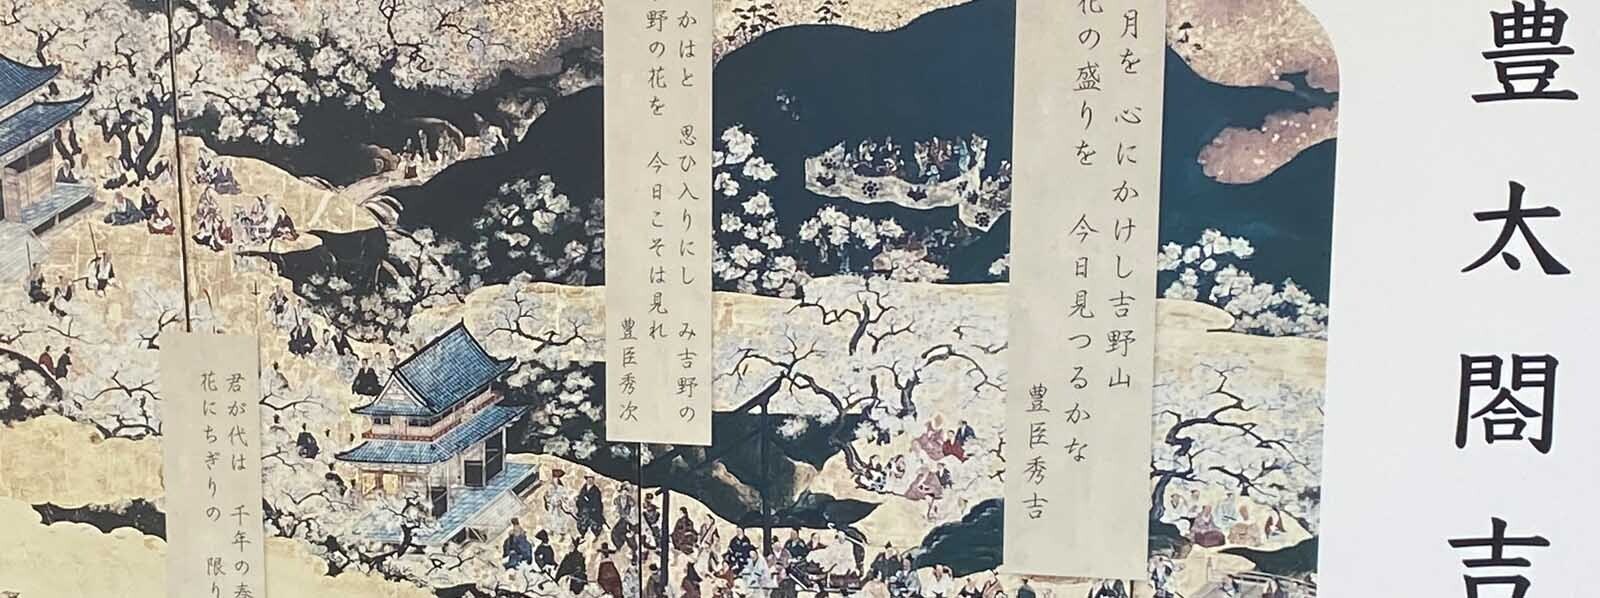 豊太閤吉
月を　心にかけし吉野山
花の盛りを　今日見つるかな
豊臣秀吉
かはと　思ひ入りにし　み吉野の
野の花を　今日こそは見れ
豊臣秀次
君が代は　千年の春
花にちぎりの　限り